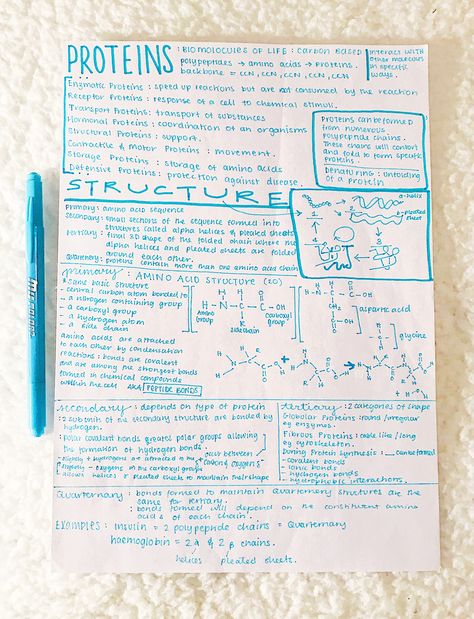 PROTEINS : BIOMOLOCULES OF LIFE : CARBON BASED
polypeptides → amino acids → proteins.
backbone = CCN, CCN, CCN, CCN, CCN
interact with
other molecules
in specific
ways.
Enzymatic Proteins : speed up reactions but are not consumed by the reaction
Receptor Proteins : response of a cell to chemical stimuli.
Transport Proteins : transport of substances
Hormonal Proteins : coordination of an organisms
Structural Proteins : support.
Contractile & Motor Proteins : movement.
Storage Proteins : storage of amino acids
Defensive Proteins : protection against disease.
Proteins can be formed
from numerous
polypeptide chains.
These chains will contort
and fold to form specific
proteins.
DENATURING : unfolding
of a protein
STRUCTURE
Primary : amino acid sequence
Secondary : small sections of the sequence formed into
structures called alpha helices & pleated sheets
Tertiary : final 3D shape of the folded chain where the
alpha helices and pleated sheets are folded
around each other.
Quaternary : proteins contain more than one amino acid chain
α-helix
β-pleated
sheet
primary : AMINO ACID STRUCTURE (20)
* same basic structure
- central carbon atom bonded to
- a nitrogen containing group
- a carboxyl group
- a hydrogen atom
- a side chain
amino acids are attached
to each other by condensation
reactions : bonds are covalent
and are among the strongest bonds
formed in chemical compounds
within the cell AKA PEPTIDE BONDS
H-N-C-C-OH
Amino
group
sidechain
carboxyl
group
H-N-C-C-OH
CH2
aspartic acid
glycine
secondary : depends on type of protein
2 subunits of the secondary structure are bonded by
hydrogen.
polar covalent bonds greates polar groups allowing
the formation of hydrogen bonds.
allows helices & pleated sheets to maintain their shape
tertiary : 2 categories of shape
Globular Proteins : round/irregular
eg enzymes.
Fibrous Proteins : cable like/long
eg cytoskeleton.
During Protein Synthesis : can be formed
- covalent bonds
- ionic bonds
- hydrogen bonds
- hydrophobic interactions.
Quarternary : bonds formed to maintain Quarternary structures are the
same for tertiary.
: bonds formed will depend on the constituent amino
acids of each chain.
EXAMPLES : insulin = 2 polypeptide chains = Quarternary
haemoglobin = 2 α & 2 β chains.
helices pleated sheets.